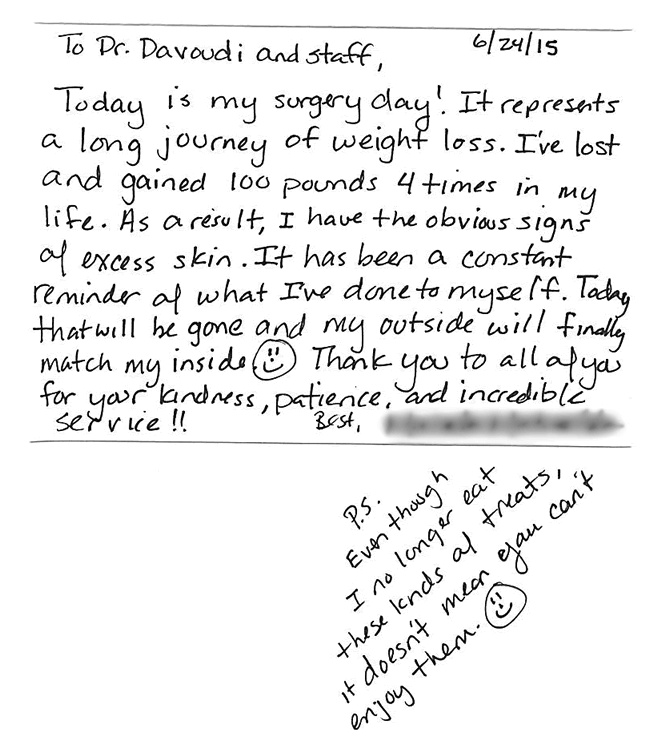 To Dr. Davoudi and staff,
6/24/15
Today is my surgery day! It represents
a long journey of weight loss. I've lost
and gained 100 pounds 4 times in my
life. As a result, I have the obvious signs
of excess skin. It has been a constant
reminder of what I've done to myself. Today
that will be gone and my outside will finally
match my inside. Thank you to all of you
for your kindness, patience, and incredible
service!!
Best,
P.S.
Even though
I no longer eat
these kinds of treats,
it doesn't mean you can't
enjoy them.